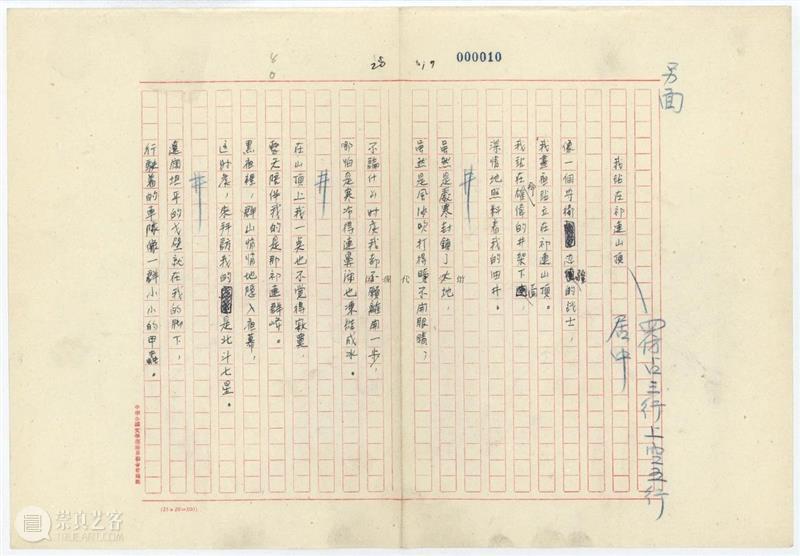 000010
另面
四仿占三行上空五行
居中
我站在祁連山頂
像一個守衛边疆的战士，
我晝夜站立在祁連山頂。
我站在雄偉的井架下面，
深情地照料着我的油井。
#
虽然是嚴寒封鎖了大地，
虽然是風沙吹打得睁不開眼睛，
不論什么时度我都不願離開一步，
哪怕是寒冷得連鼻涕也凍結成冰。
#
在山頂上我一點也不覺得寂寞，
雲天陪伴我的是那祁連群峰。
黑夜裡，群山悄悄地隐入夜幕，
这时度，來拜訪我的是北斗七星。
#
遼闊坦平的戈壁就在我的脚下，
行駛着的車隊像一群小小的甲蟲。
(25×20=500)
崇真艺客
TRUEART.COM